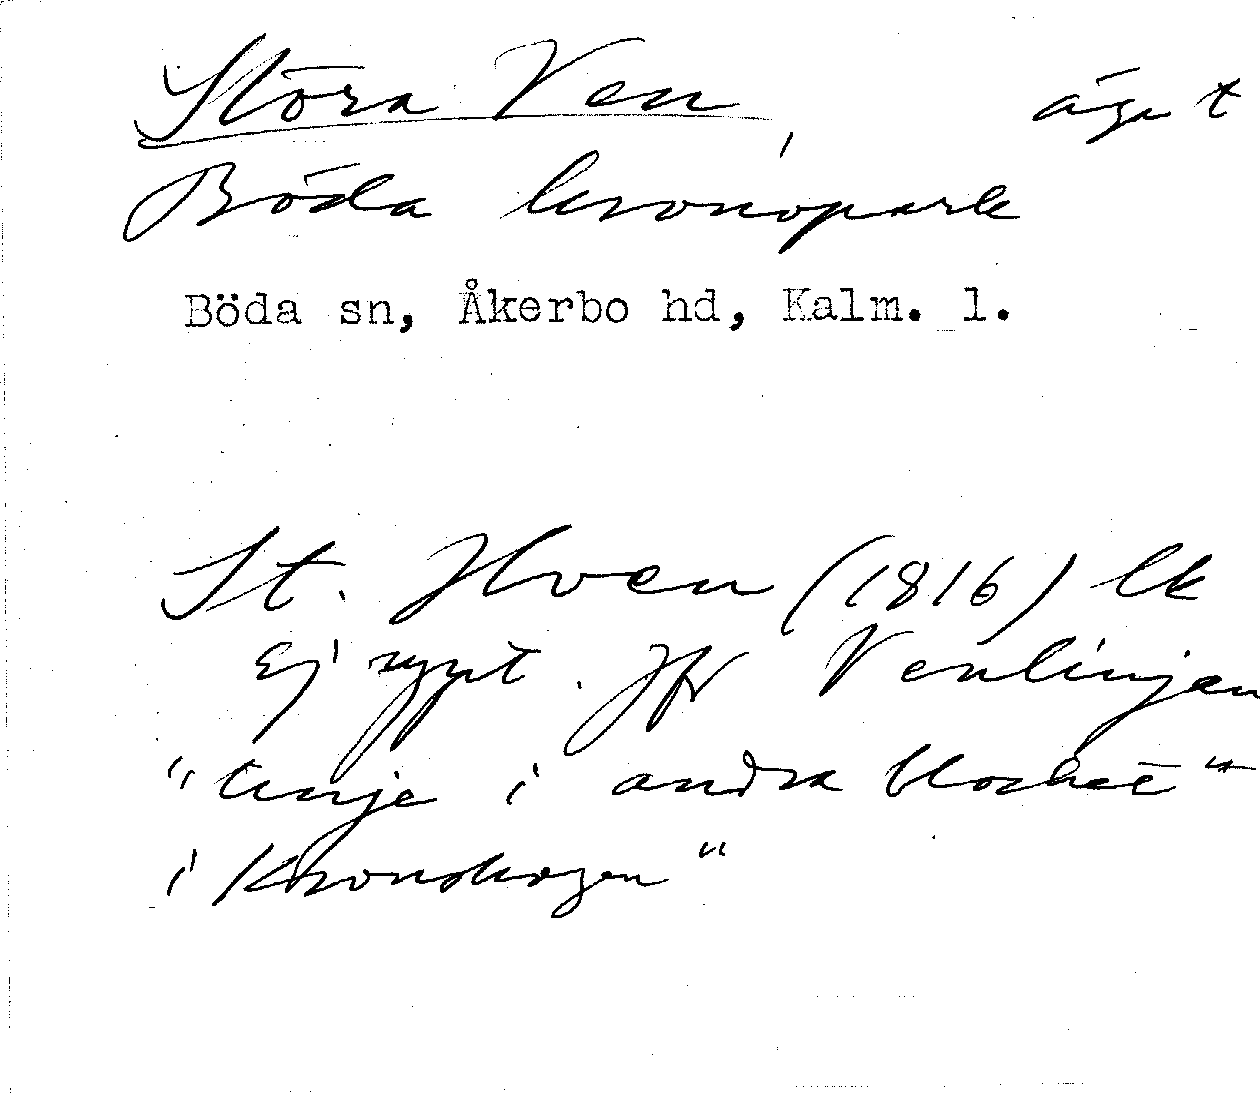 Stora Ven, ägt
Böda kronopark
Böda sn, Åkerbo hd, Kalm. l.
St. Hven (1816) lk
Ej uppt. Jfr Venlinjen
"linje i andra blocket"
i Kronskogen"